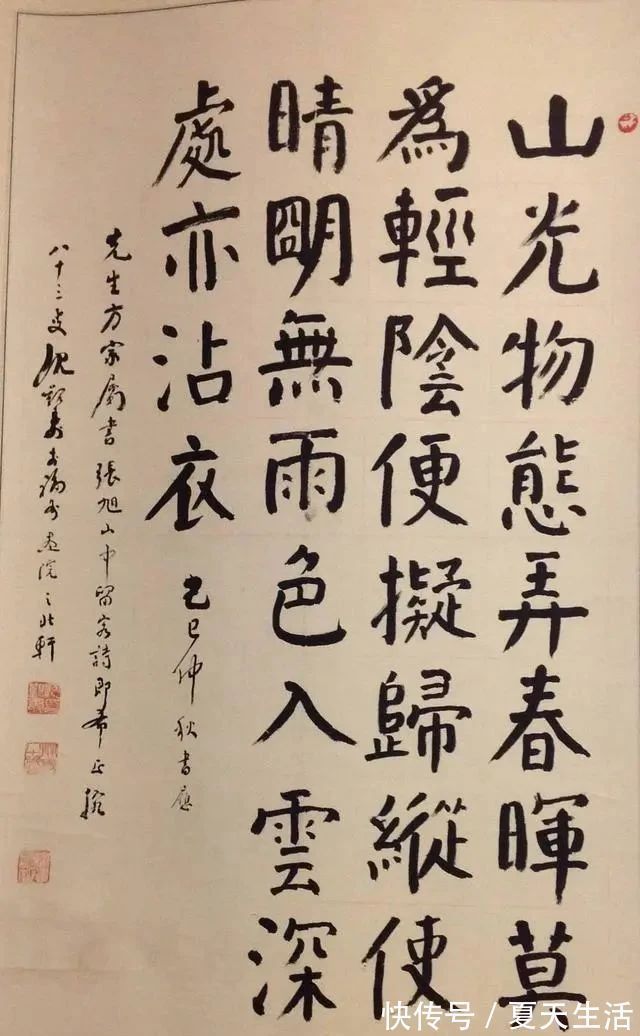 山光物態弄春暉莫
爲輕陰便擬歸縱使
晴朙無雨色入雲深
處亦沾衣
己巳仲秋書應
先生方家屬書張旭山中留客詩即希正
八十三叟沈覲壽書福州畫院之北軒
快传号／夏天生活